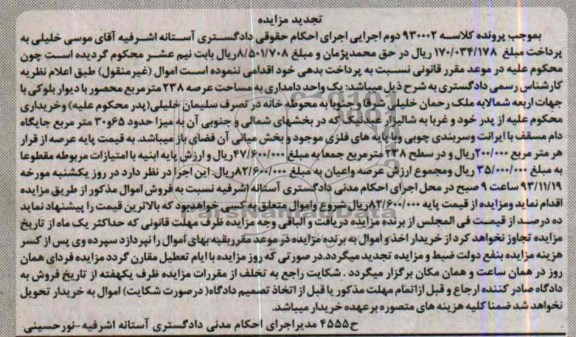 تجدید مزایده
بموجب پرونده کلاسه ۹۳۰۰۰۲ دوم اجرایی اجرای احکام حقوقی دادگستری آستانه اشرفیه آقای موسی خلیلی به
پرداخت مبلغ ۱۷۰/۰۳۴/۱۷۸ ریال در حق محمدپژمان و مبلغ ۸/۵۰۱/۷۰۸ریال بابت نیم عشر محکوم گردیده است چون
محکوم علیه در موعد مقرر قانونی نسبت به پرداخت بدهی خود اقدامی ننموده است اموال (غیرمنقول) طبق اعلام نظریه
کارشناس رسمی دادگستری به شرح ذیل میباشد: یک واحد دامداری به مساحت عرصه ۲۳۸ مترمربع محصور با دیوار بلوکی با
جهات اربعه شمالابه ملک رحمان خلیلی شرقا وجنوبا به محوطه خانه در تصرف سلیمان خلیلی(پدر محکوم علیه) وخریداری
محکوم علیه از پدر خود و غربا به شالیزار که در بخشهای شمالی و جنوبی آن به میزا حدود ۶۵و۳۰ متر مربع جایگاه
دام مسقف با ایرانت وسربندی چوبی وپایه های فلزی موجود و بخش میانی آن فضای باز میباشد. به قیمت پایه عرصه از قرار
هر متر مربع ۲۰۰/۰۰۰ریال و در سطح ۲۳۸ مترمربع جمعا به مبلغ ۴۷/۶۰۰/۰۰۰ریال و ارزش پایه ابنیه با امتیازات مربوطه مقطوعا
به مبلغ ۳۵/۰۰۰/۰۰۰ ریال ومجموع ارزش عرصه واعیان به مبلغ ۸۲/۶۰۰/۰۰۰ریال. این اجرا در نظر دارد در روز یکشنبه مورخه
۹۳/۱۱/۱۹ ساعت ۹ صبح در محل اجرای احکام مدنی دادگستری آستانه اشرفیه نسبت به فروش اموال مذکور از طریق مزایده
اقدام نماید ومزایده از قیمت پایه ۸۲/۶۰۰/۰۰۰ریال شروع واموال متعلق به کسی خواهدبود که بالاترین قیمت را پیشنهاد نماید
ده درصد از قیمت فی المجلس از برنده مزایده دریافت و الباقی وجه مزایده ظرف مهلت قانونی که حداکثر یک ماه از تاریخ
مزایده تجاوز نخواهد کرد از خریدار اخذ و اموال به برنده مزایده در موعد مقرر بقیه بهای اموال را نپردازد سپرده وی پس از کسر
هزینه مزایده بنفع دولت ضبط و مزایده تجدید میگردد.در صورتی که روز مزایده با ایام تعطیل مقارن گردد مزایده فردای همان
روز در همان ساعت و همان مکان برگزار میگردد . شکایت راجع به تخلف از مقررات مزایده ظرف یکهفته از تاریخ فروش به
دادگاه صادر کننده ارجاع و قبل ازاتمام مهلت مذکور یا قبل از اتخاذ تصمیم دادگاه( درصورت شکایت) اموال به خریدار تحویل
نخواهد شد ضمنا کلیه هزینه های متصوره برعهده خریدار میباشد.
ح۴۵۵۵ مدیراجرای احکام مدنی دادگستری آستانه اشرفیه-نورحسینی